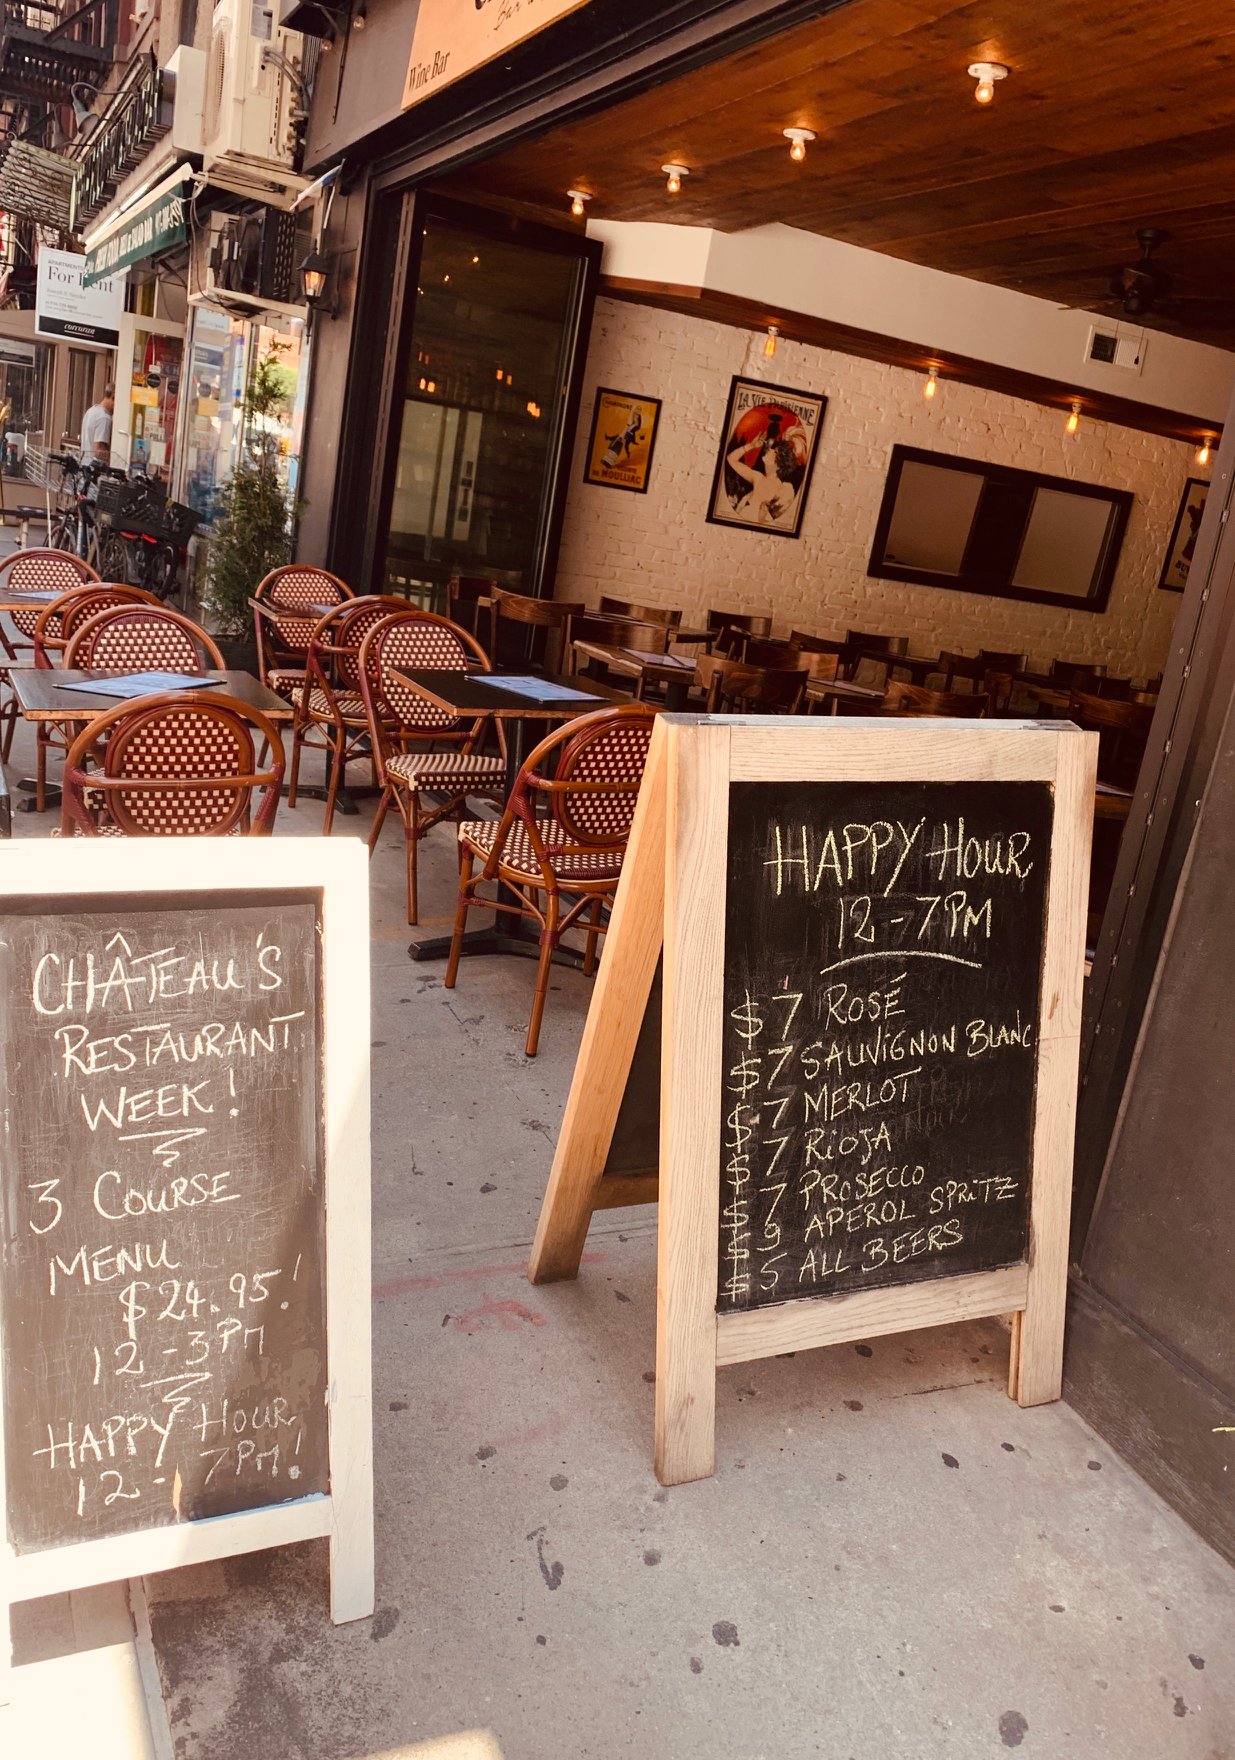 Wine Bar
APARTMENTS
For Rent
corcoran
CHAMPAGNE
DE MOULLIAC
LA VIE PARISIENNE
HAPPY HOUR
12-7PM
$7 ROSÉ
$7 SAUVIGNON BLANC
$7 MERLOT
$7 RIOJA
$7 PROSECCO
$9 APEROL SPRITZ
$5 ALL BEERS
CHÂTEAU'S
RESTAURANT
WEEK!
3 COURSE
MENU
$24.95!
12-3PM
HAPPY HOUR
12-7PM!